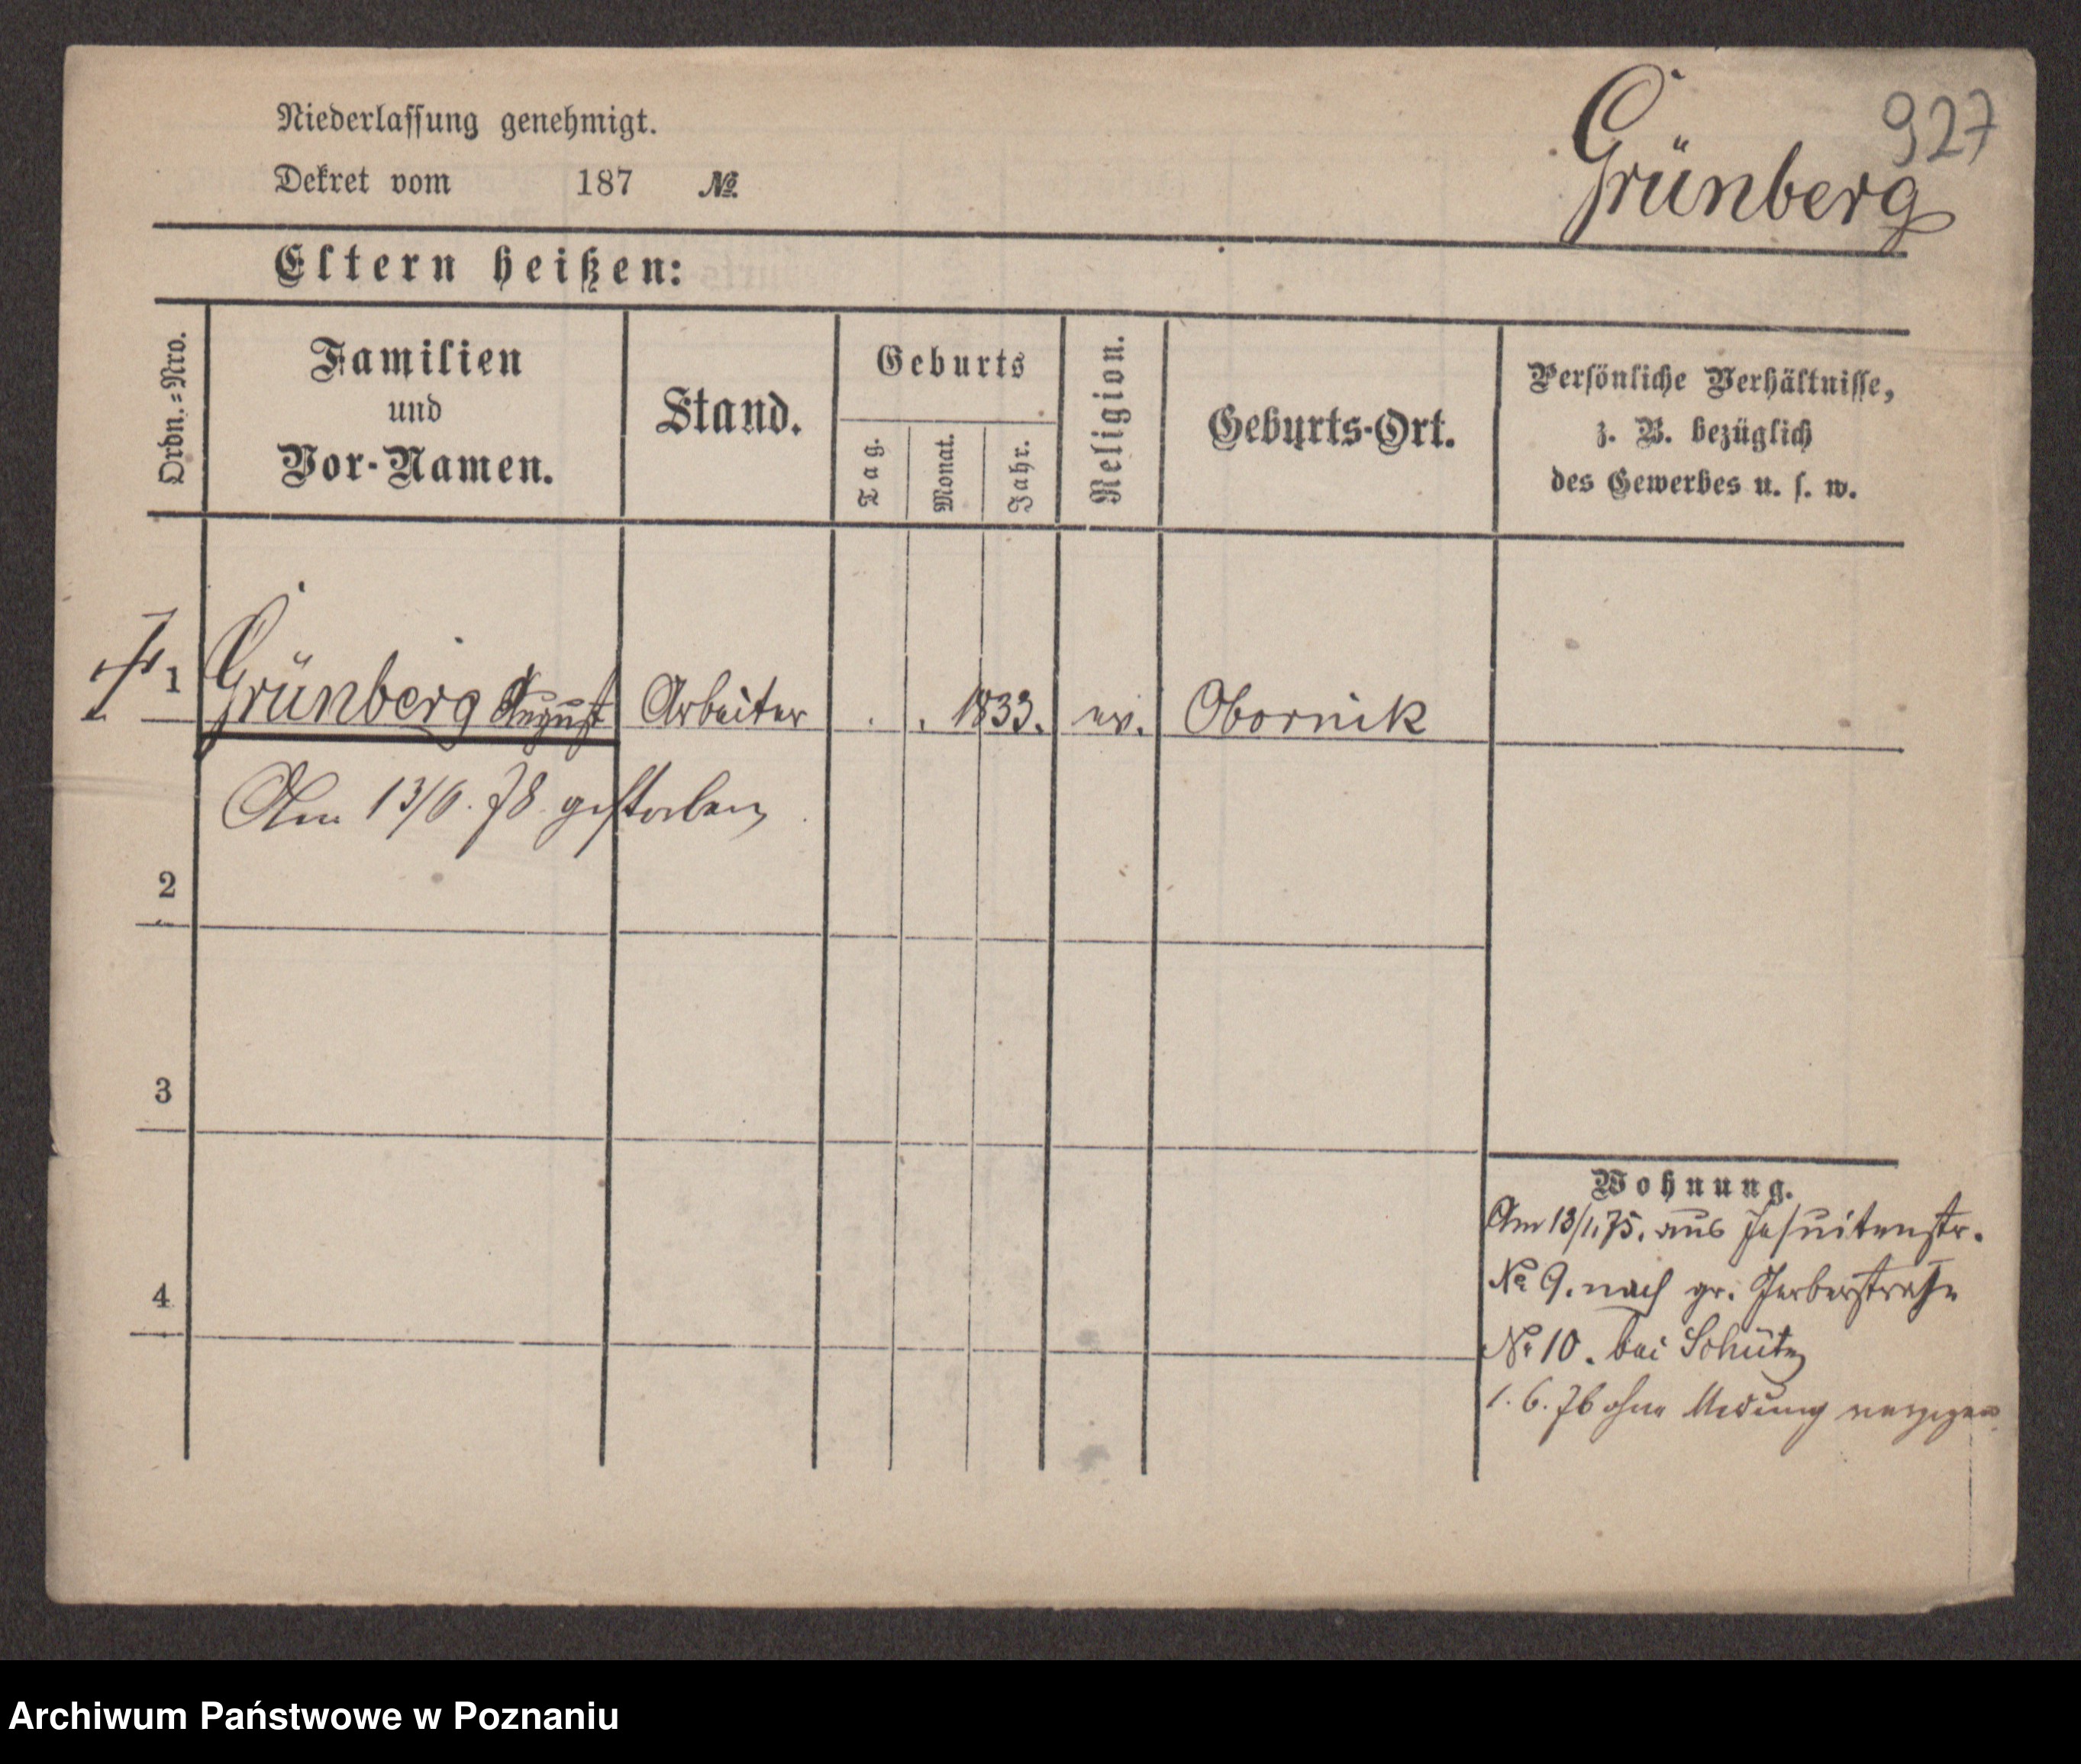 927
Grünberg
Niederlassung genehmigt.
Dekret vom 187 No.
Eltern heißen:
Ordn.-Nro.
Familien
und
Vor-Namen.
Stand.
Geburts
Tag.
Monat.
Jahr.
Religion.
Geburts-Ort.
Persönliche Verhältnisse,
z. B. bezüglich
des Gewerbes u. s. w.
1 Grünberg August Arbeiter . . 1833. ev. Obornik
Am 13/6. 78 gestorben
2
3
4
Wohnung.
Am 13/1.75. aus Jesuitenstr.
No 9. nach gr. Gerberstraße
No 10. bei Schütz
1. 6. 76 ohne Meldung verzogen
Archiwum Państwowe w Poznaniu